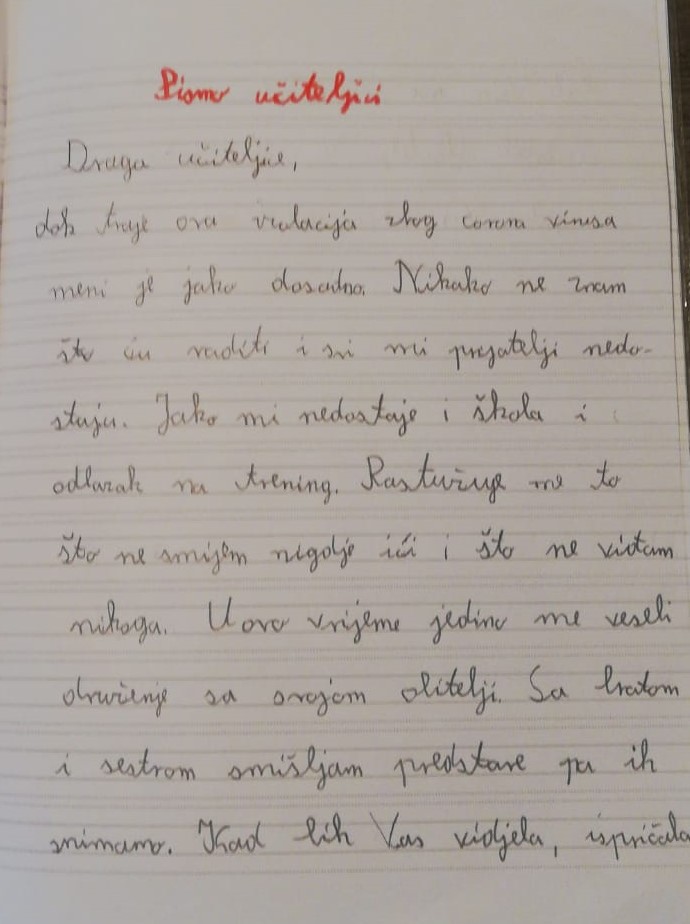 Pismo učiteljici
Draga učiteljice,
dok traje ova izolacija zbog corona virusa
meni je jako dosadno. Nikako ne znam
što ću raditi i svi mi prijatelji nedo-
staju. Jako mi nedostaje i škola i
odlazak na trening. Rastužuje me to
što ne smijem nigdje ići i što ne viđam
nikoga. U ovo vrijeme jedino me veseli
druženje sa svojom obitelji. Sa bratom
i sestrom smišljam predstave pa ih
snimamo. Kad bih Vas vidjela, ispričala